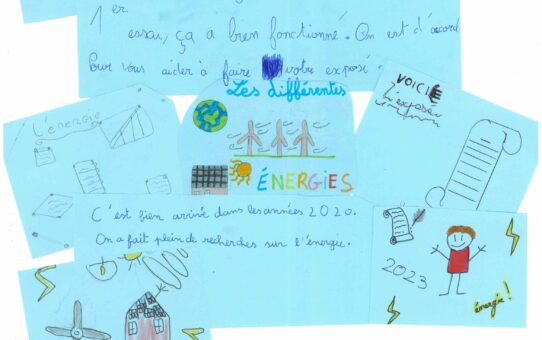 1er
essai, ça a bien fonctionné. On est d'accord
Pour vous aider à faire votre exposé.
Les différentes
ÉNERGIES
VOICI
l'exposé
L'énergie
C'est bien arrivé dans les années 2020.
On a fait plein de recherches sur l'énergie.
2023
énergie!